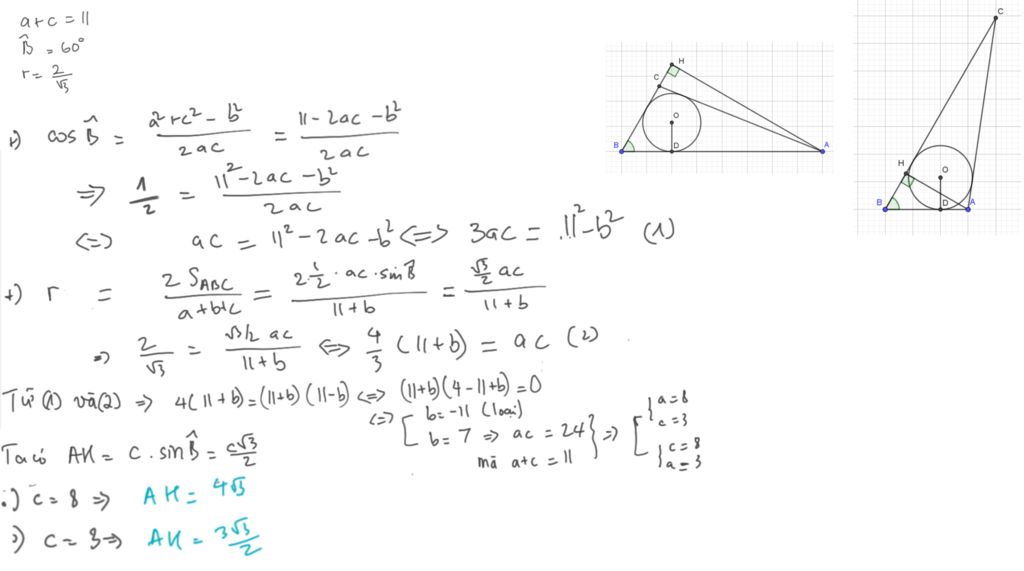 a+c = 11
B̂ = 60°
r = 2/√3
+) cos B̂ = (a²+c² - b²)/(2ac) = (11 - 2ac - b²)/(2ac)
=> 1/2 = (11² - 2ac - b²)/(2ac)
<=> ac = 11² - 2ac - b² <=> 3ac = 11² - b² (1)
+) r = (2 S_ABC)/(a+b+c) = (2·1/2 · ac · sin B̂)/(11+b) = (√3/2 ac)/(11+b)
=> 2/√3 = (√3/2 ac)/(11+b) <=> 4/3 (11+b) = ac (2)
Từ (1) và (2) => 4(11+b) = (11+b)(11-b) <=> (11+b)(4-11+b) = 0
<=> [ b = -11 (loại)
b = 7 => ac = 24
mà a+c = 11 } => [ { a = 8
c = 3
{ c = 8
a = 3
Ta có AH = c . sin B̂ = c√3/2
.) c = 8 => AH = 4√3
.) c = 3 => AH = 3√3/2
H
C
O
B
D
A
C
H
O
B
D
A